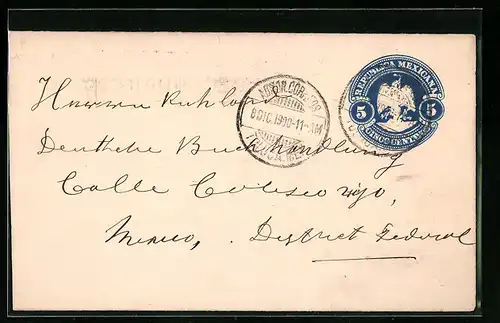 REPUBLICA MEXICANA
5 5
CINCO CENTAVOS
8 DIC. 1900-11-AM
Herrn Ruhland
Deutsche Buchhandlung
Calle Coliseo viejo,
Mexico,
District Federal